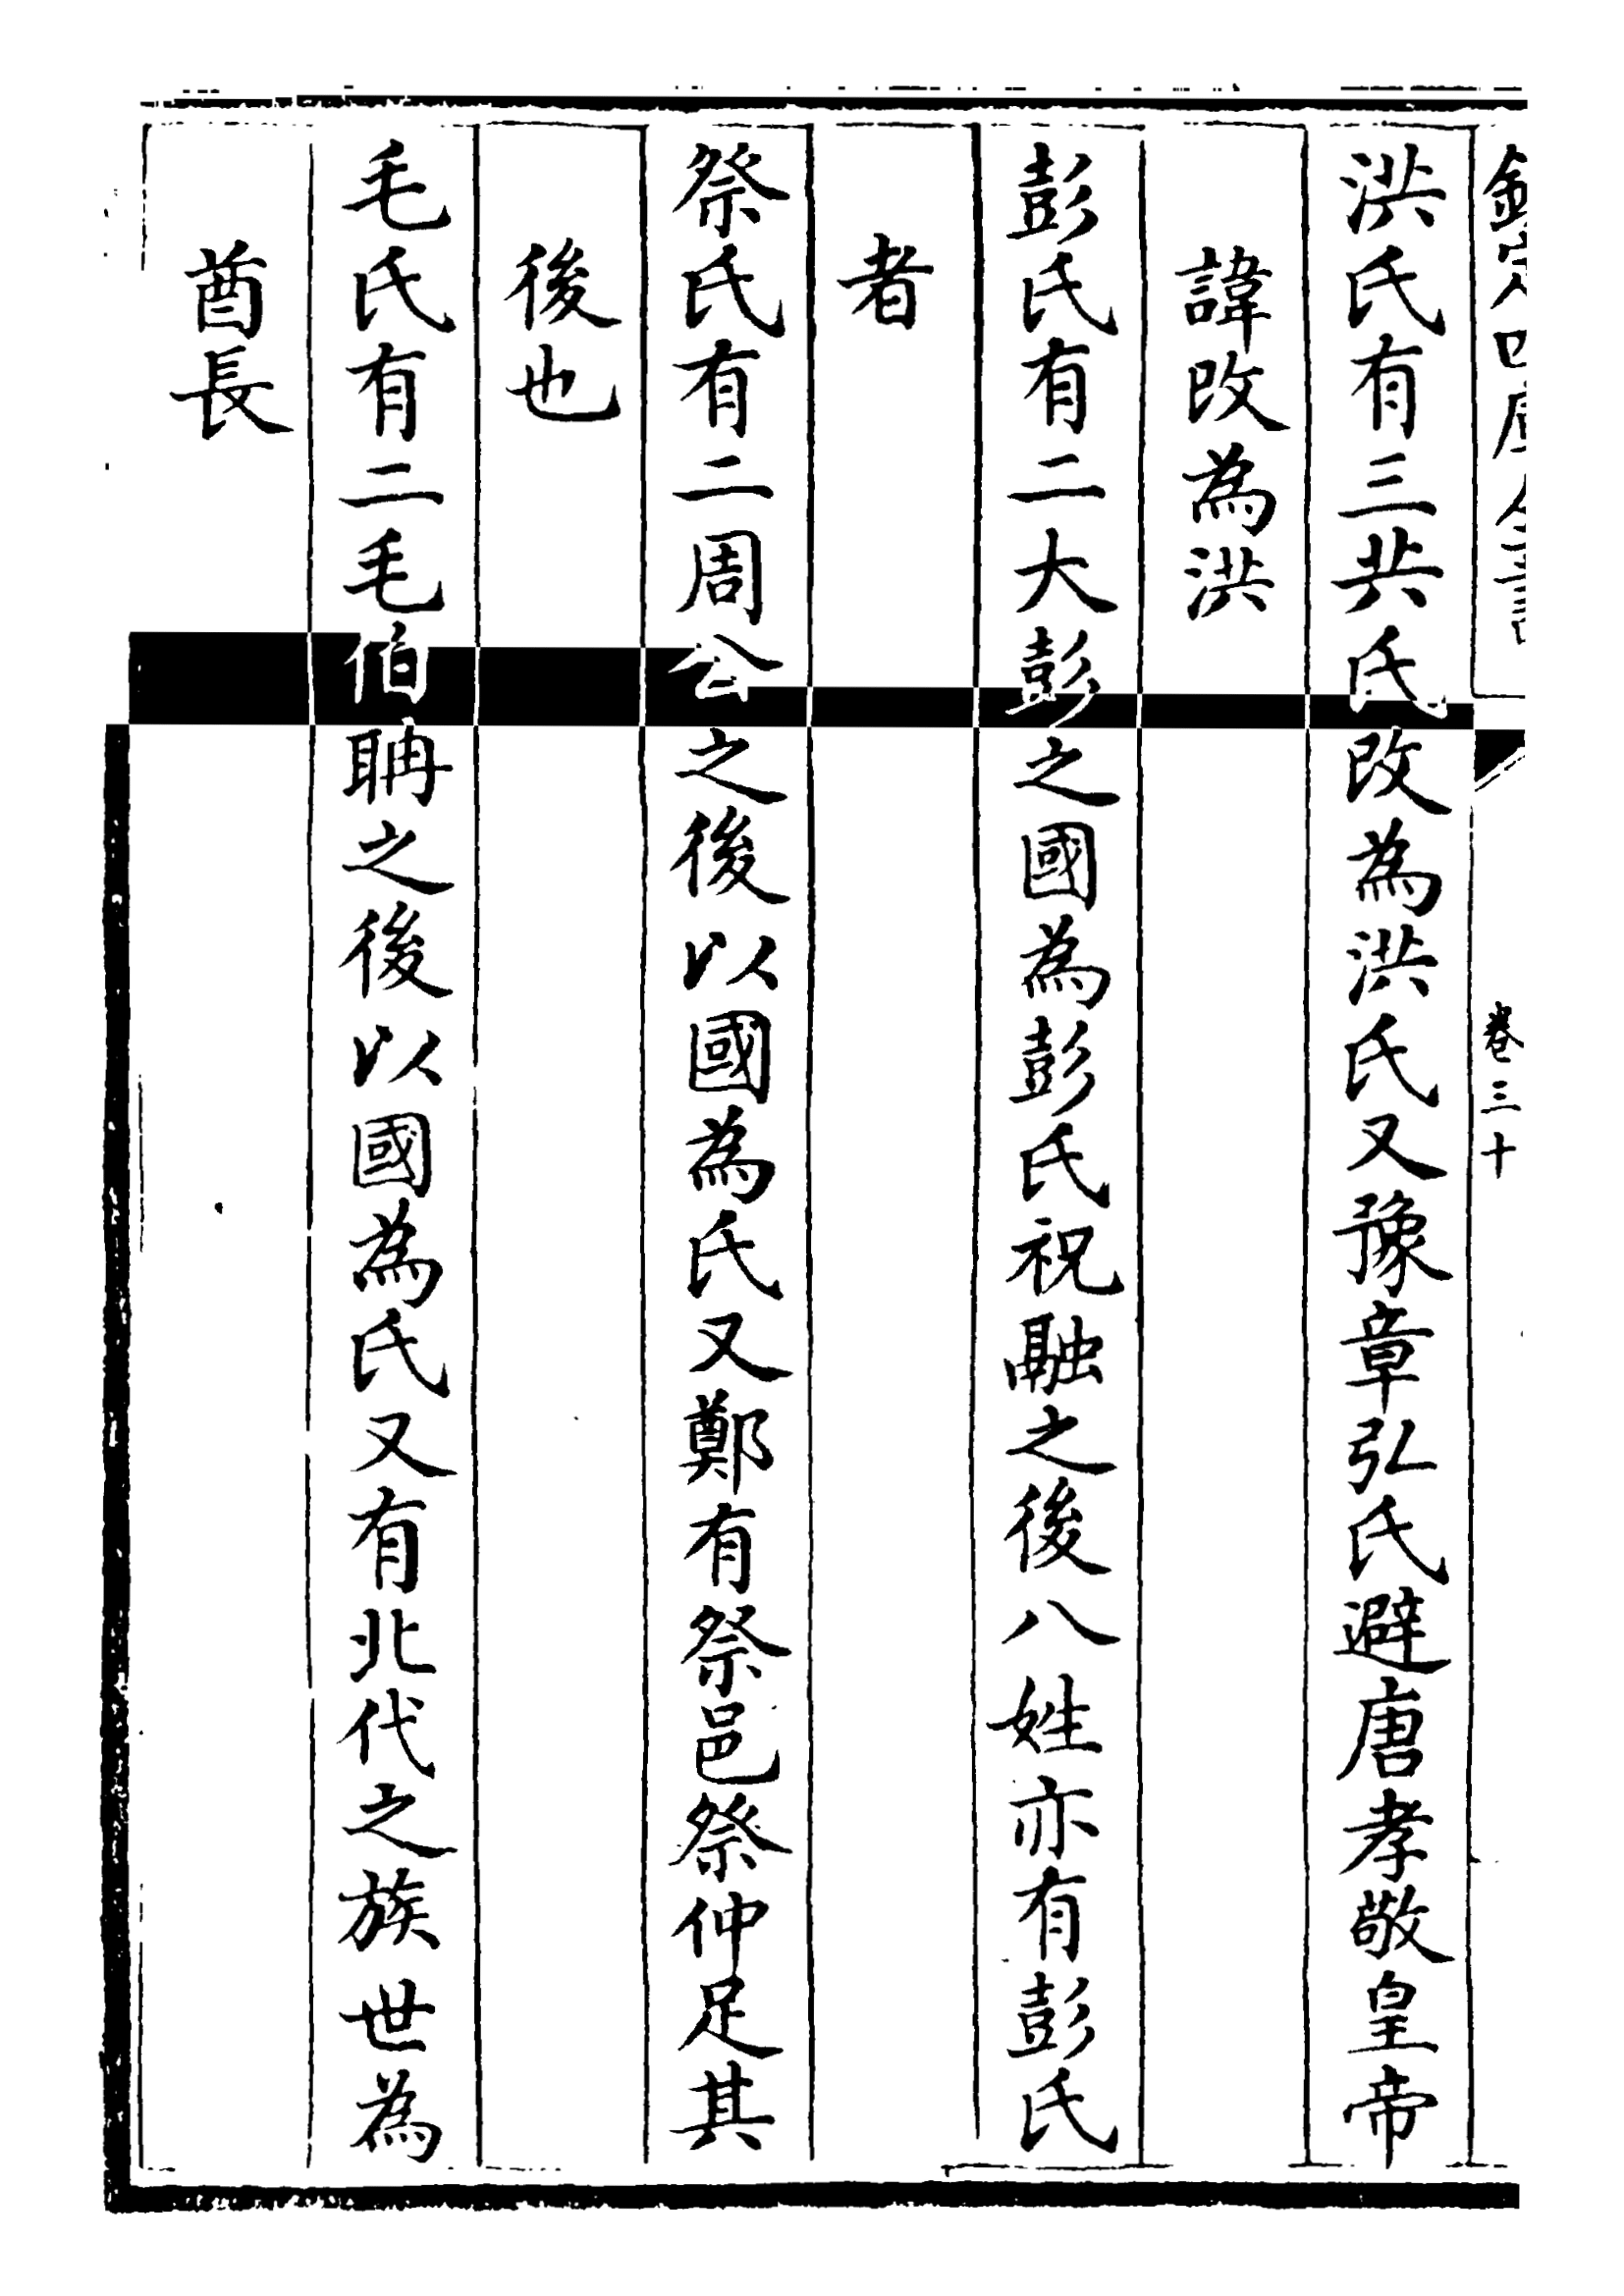 欽定四庫全書 卷三十
洪氏有三共氏改為洪氏又豫章弘氏避唐孝敬皇帝
諱改為洪
彭氏有二大彭之國為彭氏祝融之後八姓亦有彭氏
者
祭氏有二周公之後以國為氏又鄭有祭邑祭仲足其
後也
毛氏有二毛伯聃之後以國為氏又有北代之族世為
酋長